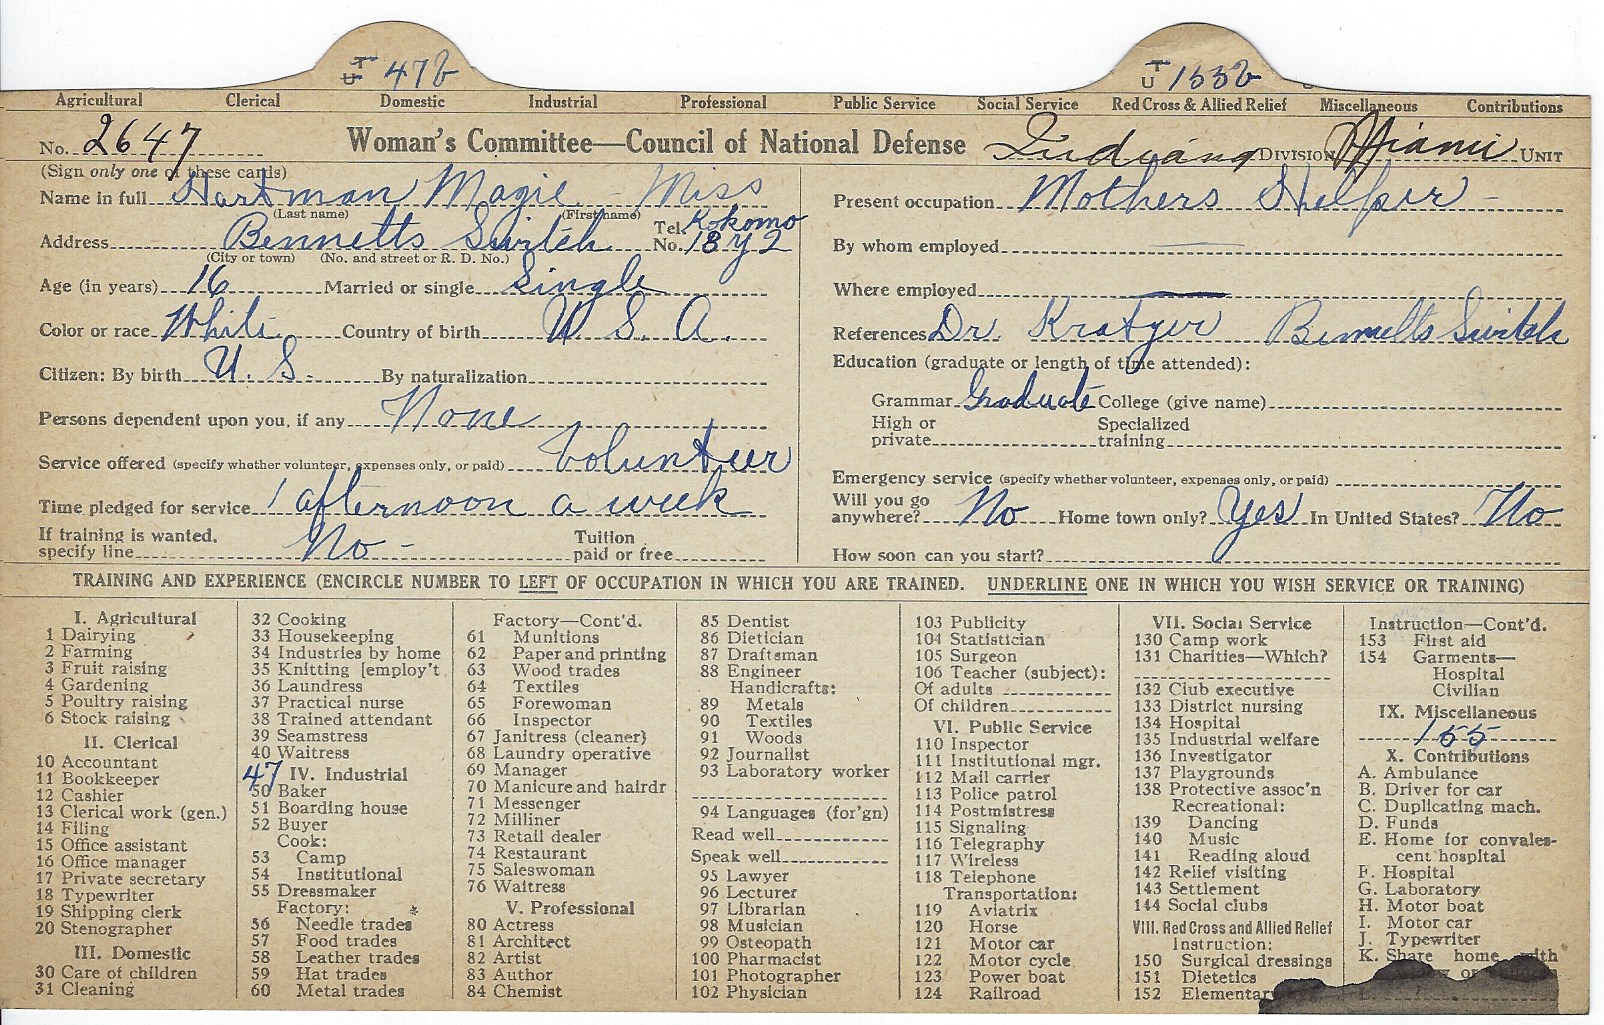 T U 47b T U 155b
Agricultural Clerical Domestic Industrial Professional Public Service Social Service Red Cross & Allied Relief Miscellaneous Contributions
No. 2647 Woman's Committee—Council of National Defense Indiana DIVISION Miami UNIT
(Sign only one of these cards)
Name in full Hartman Magie - Miss
(Last name) (First name)
Address Bennetts Switch Tel. No. Kokomo 18 y 2
(City or town) (No. and street or R. D. No.)
Age (in years) 16 Married or single Single
Color or race White Country of birth U. S. A.
Citizen: By birth U. S. By naturalization
Persons dependent upon you, if any None
Service offered (specify whether volunteer, expenses only, or paid) Volunteer
Time pledged for service 1 afternoon a week
If training is wanted, specify line No - Tuition paid or free
Present occupation Mothers Helper -
By whom employed
Where employed
References Dr. Kratzer Bennetts Switch
Education (graduate or length of time attended):
Grammar Graduate College (give name)
High or private Specialized training
Emergency service (specify whether volunteer, expenses only, or paid)
Will you go anywhere? No Home town only? Yes In United States? No
How soon can you start?
TRAINING AND EXPERIENCE (ENCIRCLE NUMBER TO LEFT OF OCCUPATION IN WHICH YOU ARE TRAINED. UNDERLINE ONE IN WHICH YOU WISH SERVICE OR TRAINING)
I. Agricultural
1 Dairying
2 Farming
3 Fruit raising
4 Gardening
5 Poultry raising
6 Stock raising
II. Clerical
10 Accountant
11 Bookkeeper
12 Cashier
13 Clerical work (gen.)
14 Filing
15 Office assistant
16 Office manager
17 Private secretary
18 Typewriter
19 Shipping clerk
20 Stenographer
III. Domestic
30 Care of children
31 Cleaning
32 Cooking
33 Housekeeping
34 Industries by home
35 Knitting [employ't
36 Laundress
37 Practical nurse
38 Trained attendant
39 Seamstress
40 Waitress
47 IV. Industrial
50 Baker
51 Boarding house
52 Buyer
Cook:
53 Camp
54 Institutional
55 Dressmaker
Factory:
56 Needle trades
57 Food trades
58 Leather trades
59 Hat trades
60 Metal trades
Factory—Cont'd.
61 Munitions
62 Paper and printing
63 Wood trades
64 Textiles
65 Forewoman
66 Inspector
67 Janitress (cleaner)
68 Laundry operative
69 Manager
70 Manicure and hairdr
71 Messenger
72 Milliner
73 Retail dealer
74 Restaurant
75 Saleswoman
76 Waitress
V. Professional
80 Actress
81 Architect
82 Artist
83 Author
84 Chemist
85 Dentist
86 Dietician
87 Draftsman
88 Engineer
Handicrafts:
89 Metals
90 Textiles
91 Woods
92 Journalist
93 Laboratory worker
94 Languages (for'gn)
Read well
Speak well
95 Lawyer
96 Lecturer
97 Librarian
98 Musician
99 Osteopath
100 Pharmacist
101 Photographer
102 Physician
103 Publicity
104 Statistician
105 Surgeon
106 Teacher (subject):
Of adults
Of children
VI. Public Service
110 Inspector
111 Institutional mgr.
112 Mail carrier
113 Police patrol
114 Postmistress
115 Signaling
116 Telegraphy
117 Wireless
118 Telephone
Transportation:
119 Aviatrix
120 Horse
121 Motor car
122 Motor cycle
123 Power boat
124 Railroad
VII. Social Service
130 Camp work
131 Charities—Which?
132 Club executive
133 District nursing
134 Hospital
135 Industrial welfare
136 Investigator
137 Playgrounds
138 Protective assoc'n
Recreational:
139 Dancing
140 Music
141 Reading aloud
142 Relief visiting
143 Settlement
144 Social clubs
VIII. Red Cross and Allied Relief
Instruction:
150 Surgical dressings
151 Dietetics
152 Elementary
Instruction—Cont'd.
153 First aid
154 Garments—
Hospital
Civilian
IX. Miscellaneous
155
X. Contributions
A. Ambulance
B. Driver for car
C. Duplicating mach.
D. Funds
E. Home for convalescent hospital
F. Hospital
G. Laboratory
H. Motor boat
I. Motor car
J. Typewriter
K. Share home with